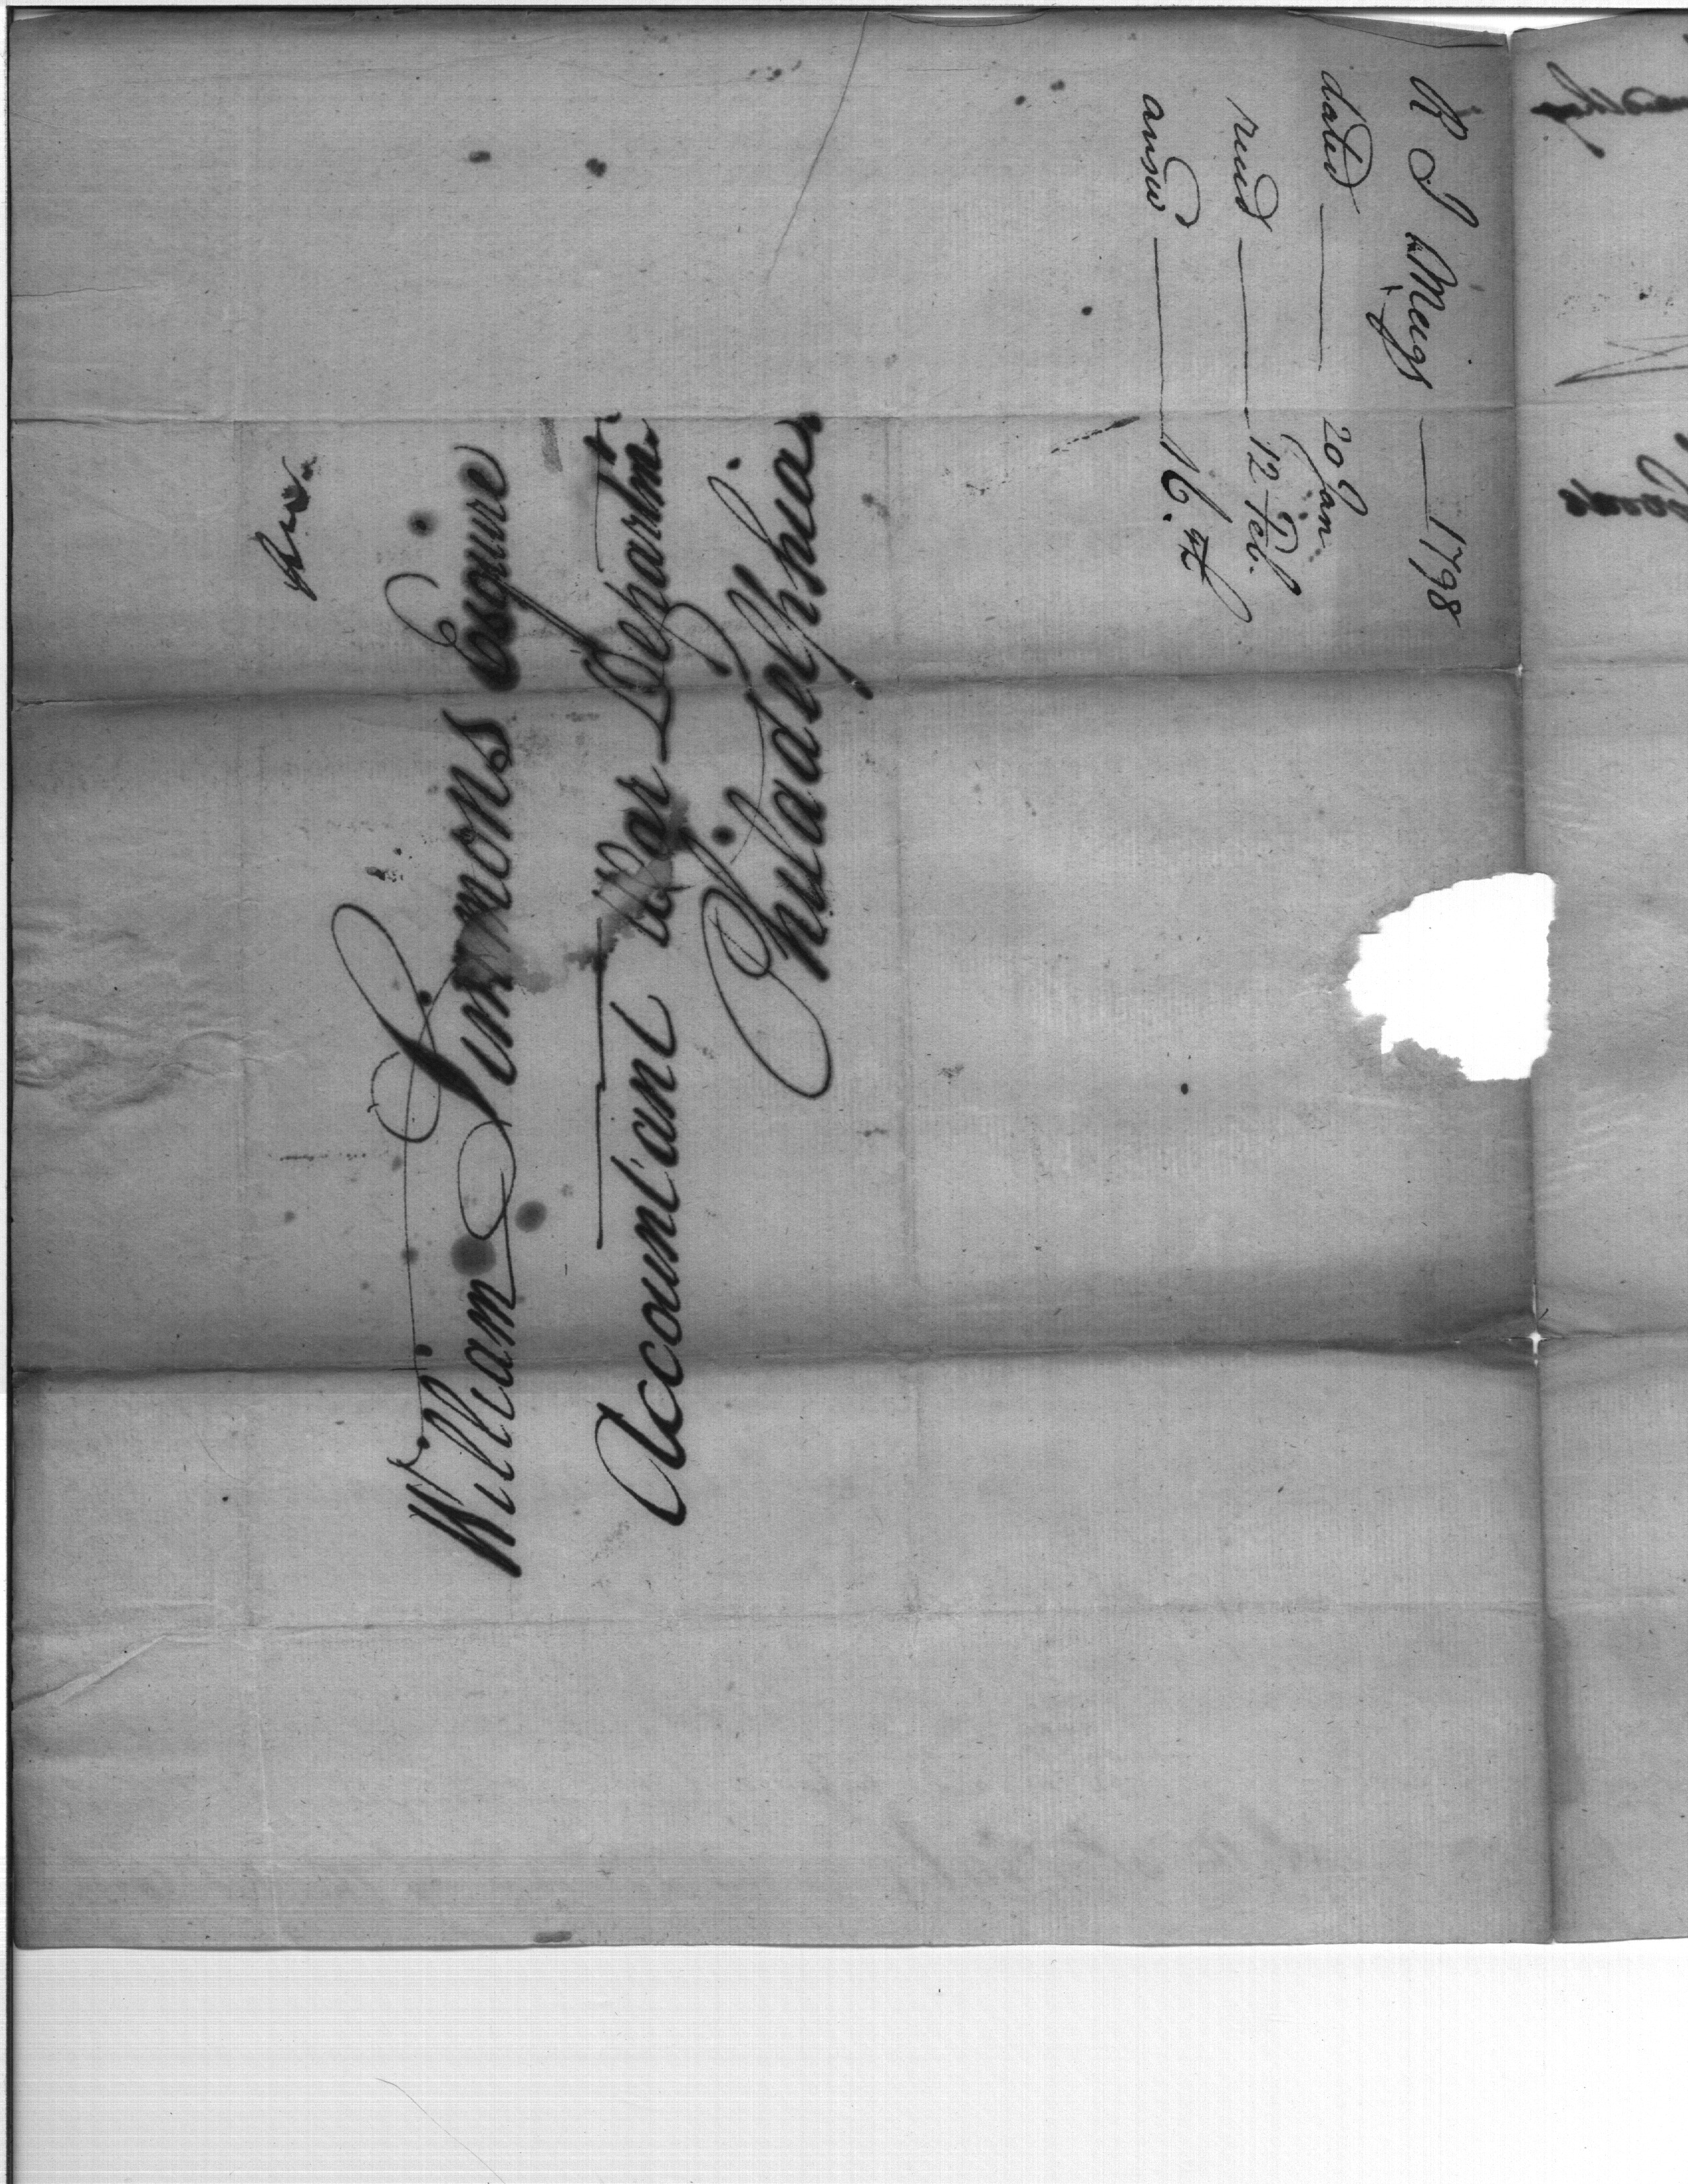 Free
William Simmons Esquire
Accountant War Departmt.
Philadelphia
R J Meigs — 1798
dated — 20 Jan.
recd — 12 Feb.
answd — 16.